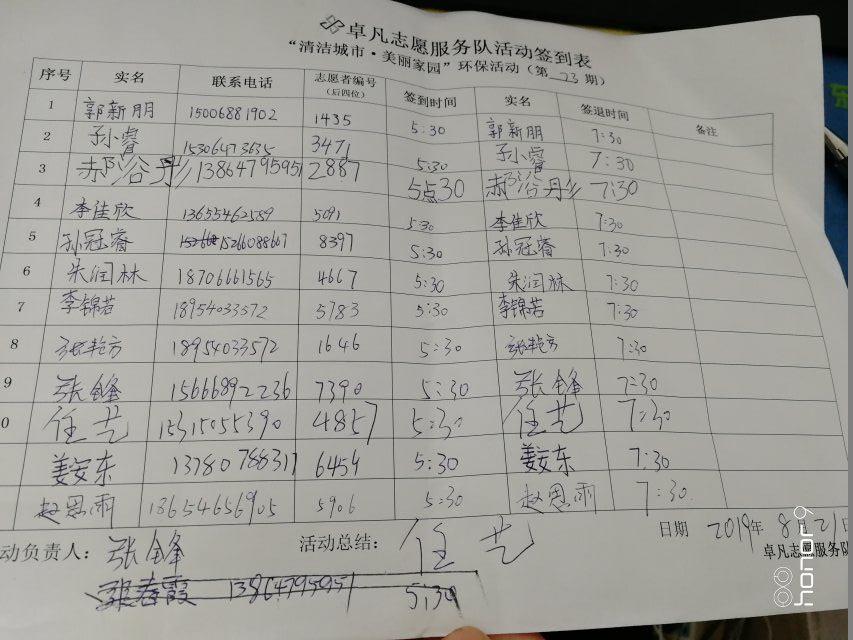 卓凡志愿服务队活动签到表
“清洁城市·美丽家园”环保活动（第 23 期）
序号 实名 联系电话 志愿者编号（后四位） 签到时间 实名 签退时间 备注
1 郭新朋 15006881902 1435 5:30 郭新朋 7:30
2 子小睿 15306473635 3471 5:30 子小睿 7:30
3 郝谷丹 13864795951 2887 5点30 郝谷丹 7:30
4 李佳欣 13655462589 5091 5:30 李佳欣 7:30
5 孙冠睿 15266088667 8397 5:30 孙冠睿 7:30
6 朱润林 18706661565 4667 5:30 朱润林 7:30
7 李锦若 18954033572 5783 5:30 李锦若 7:30
8 张艳方 18954033572 1646 5:30 张艳方 7:30
9 张锋 15666892236 7390 5:30 张锋 7:30
0 任艺 15315055390 4857 5:30 任艺 7:30
姜安东 13780788317 6454 5:30 姜安东 7:30
赵恩雨 18654656905 5906 5:30 赵恩雨 7:30
动负责人： 张锋 活动总结： 任艺 日期 2019年8月21日
卓凡志愿服务队
张春霞 13864795951 5:30
honor9